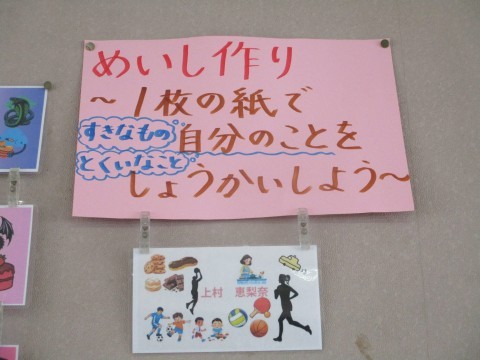 めいし作り
～1枚の紙で
すきなもの
自分のことを
とくいなこと
しょうかいしよう～
上村 恵梨奈